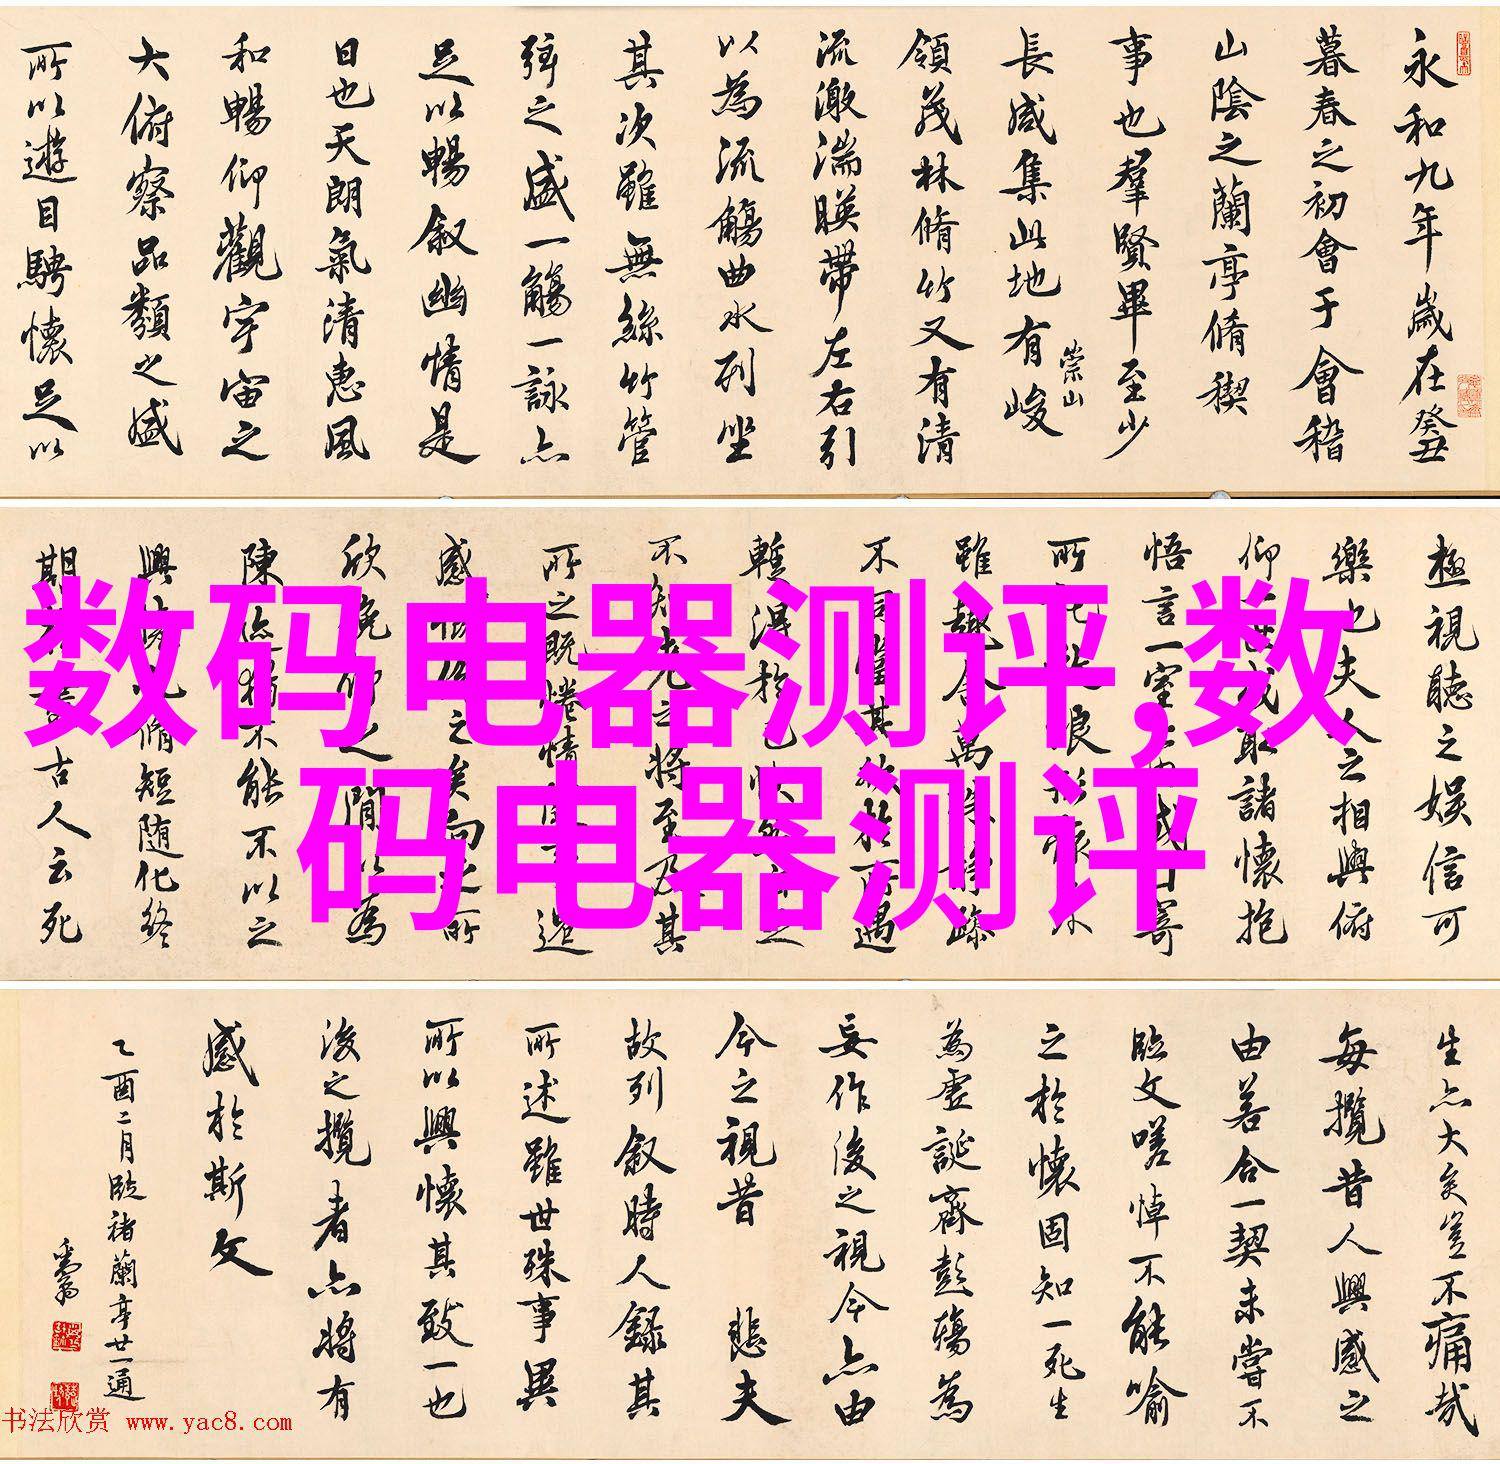 永和九年歲在癸丑
暮春之初會于會稽
山陰之蘭亭脩稧
事也羣賢畢至少
長咸集此地有崇山峻
領茂林脩竹又有清
流激湍暎帶左右引
以為流觴曲水列坐
其次雖無絲竹管
弦之盛一觴一詠亦
足以暢叙幽情是
日也天朗氣清惠風
和暢仰觀宇宙之
大俯察品類之盛
所以遊目騁懷足以
極視聽之娛信可
樂也夫人之相與俯
仰一世或取諸懷抱
悟言一室之內或因寄
所託放浪形骸之外
雖趣舍萬殊靜躁
不同當其欣於所遇
暫得於己快然自足
不知老之將至及其
所之既惓情隨事遷
感慨係之矣向之所
欣俛仰之間以為
陳迹猶不能不以之
興懷況脩短随化終
期於盡古人云死
生亦大矣豈不痛哉
每攬昔人興感之
由若合一契未嘗不
臨文嗟悼不能喻
之於懷固知一死生
為虛誕齊彭殤為
妄作後之視今亦由
今之視昔 悲夫
故列叙時人錄其
所述雖世殊事異
所以興懷其致一也
後之攬者亦將有
感於斯文
乙酉二月臨褚蘭亭廿一通
数码电器测评,数
码电器测评
书法欣赏 www.yac8.com